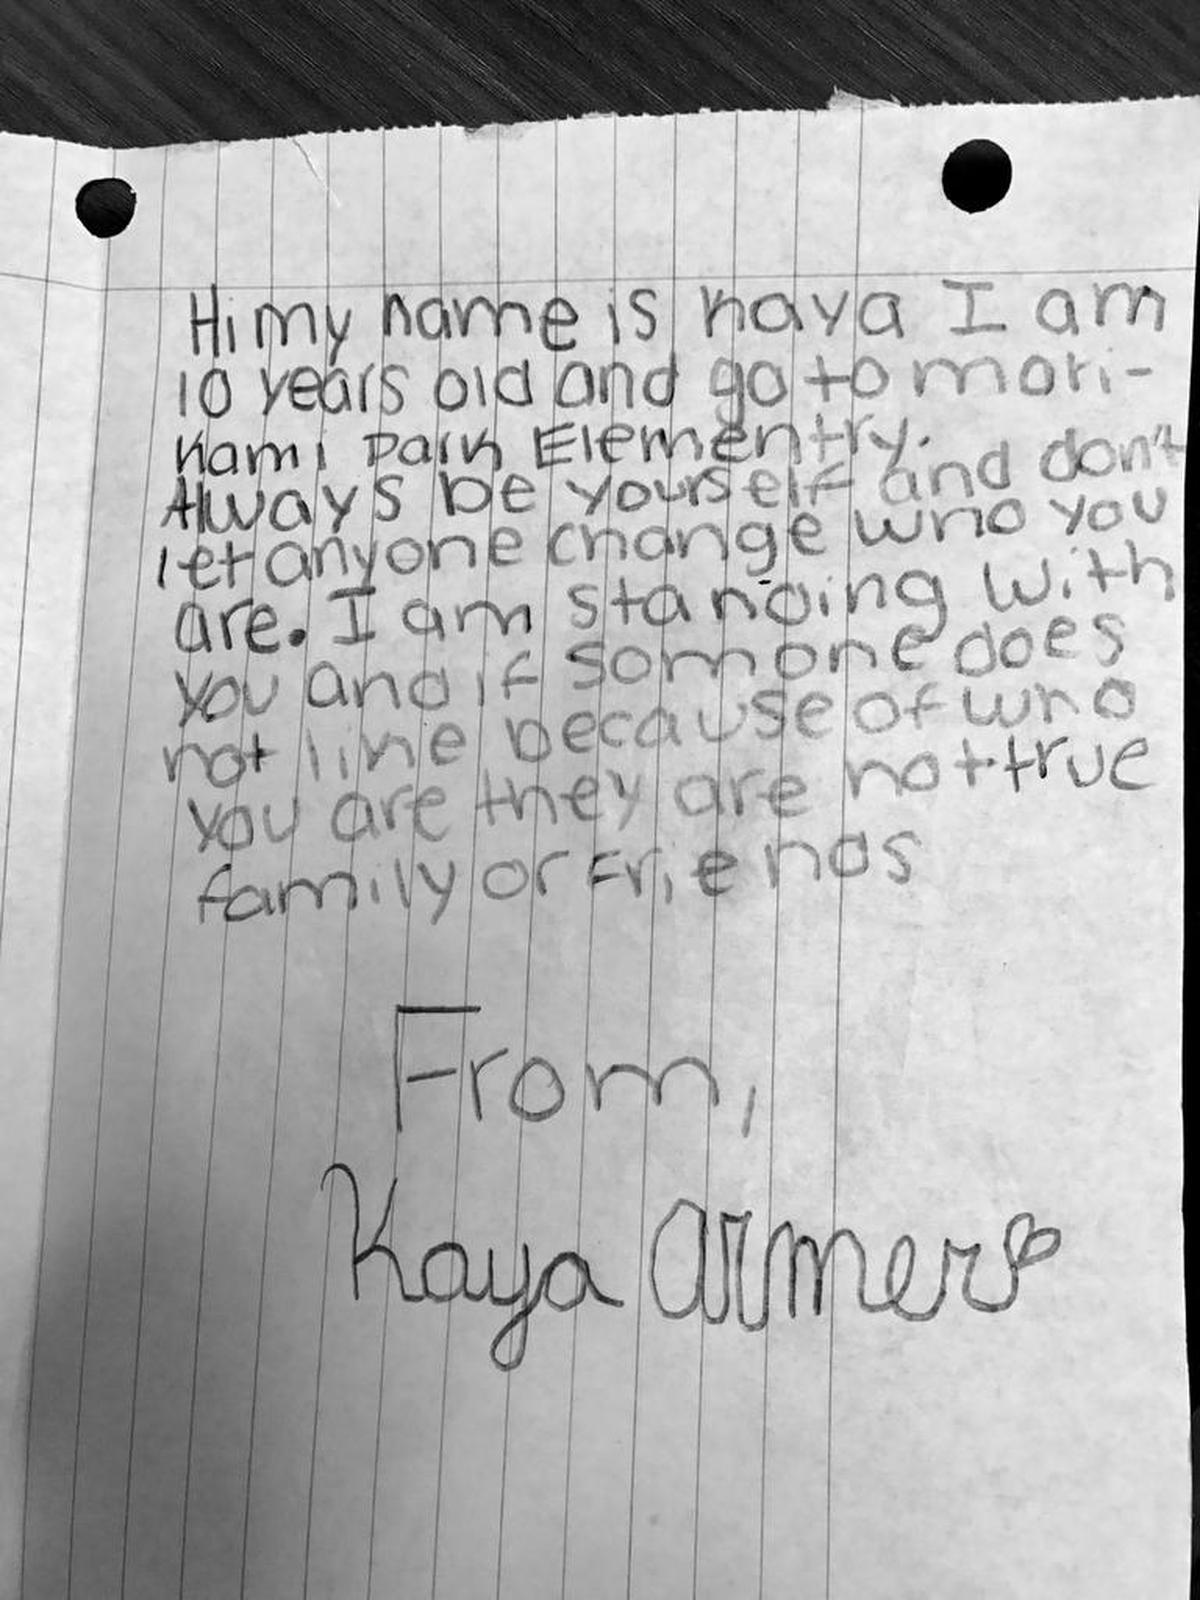 Hi my name is kaya I am
10 years old and go to mori-
kami Park Elementry.
Always be yourself and don't
let anyone change who you
are. I am standing with
you and if somone does
not like because of who
you are they are not true
family or Friends
From,
Kaya Armer